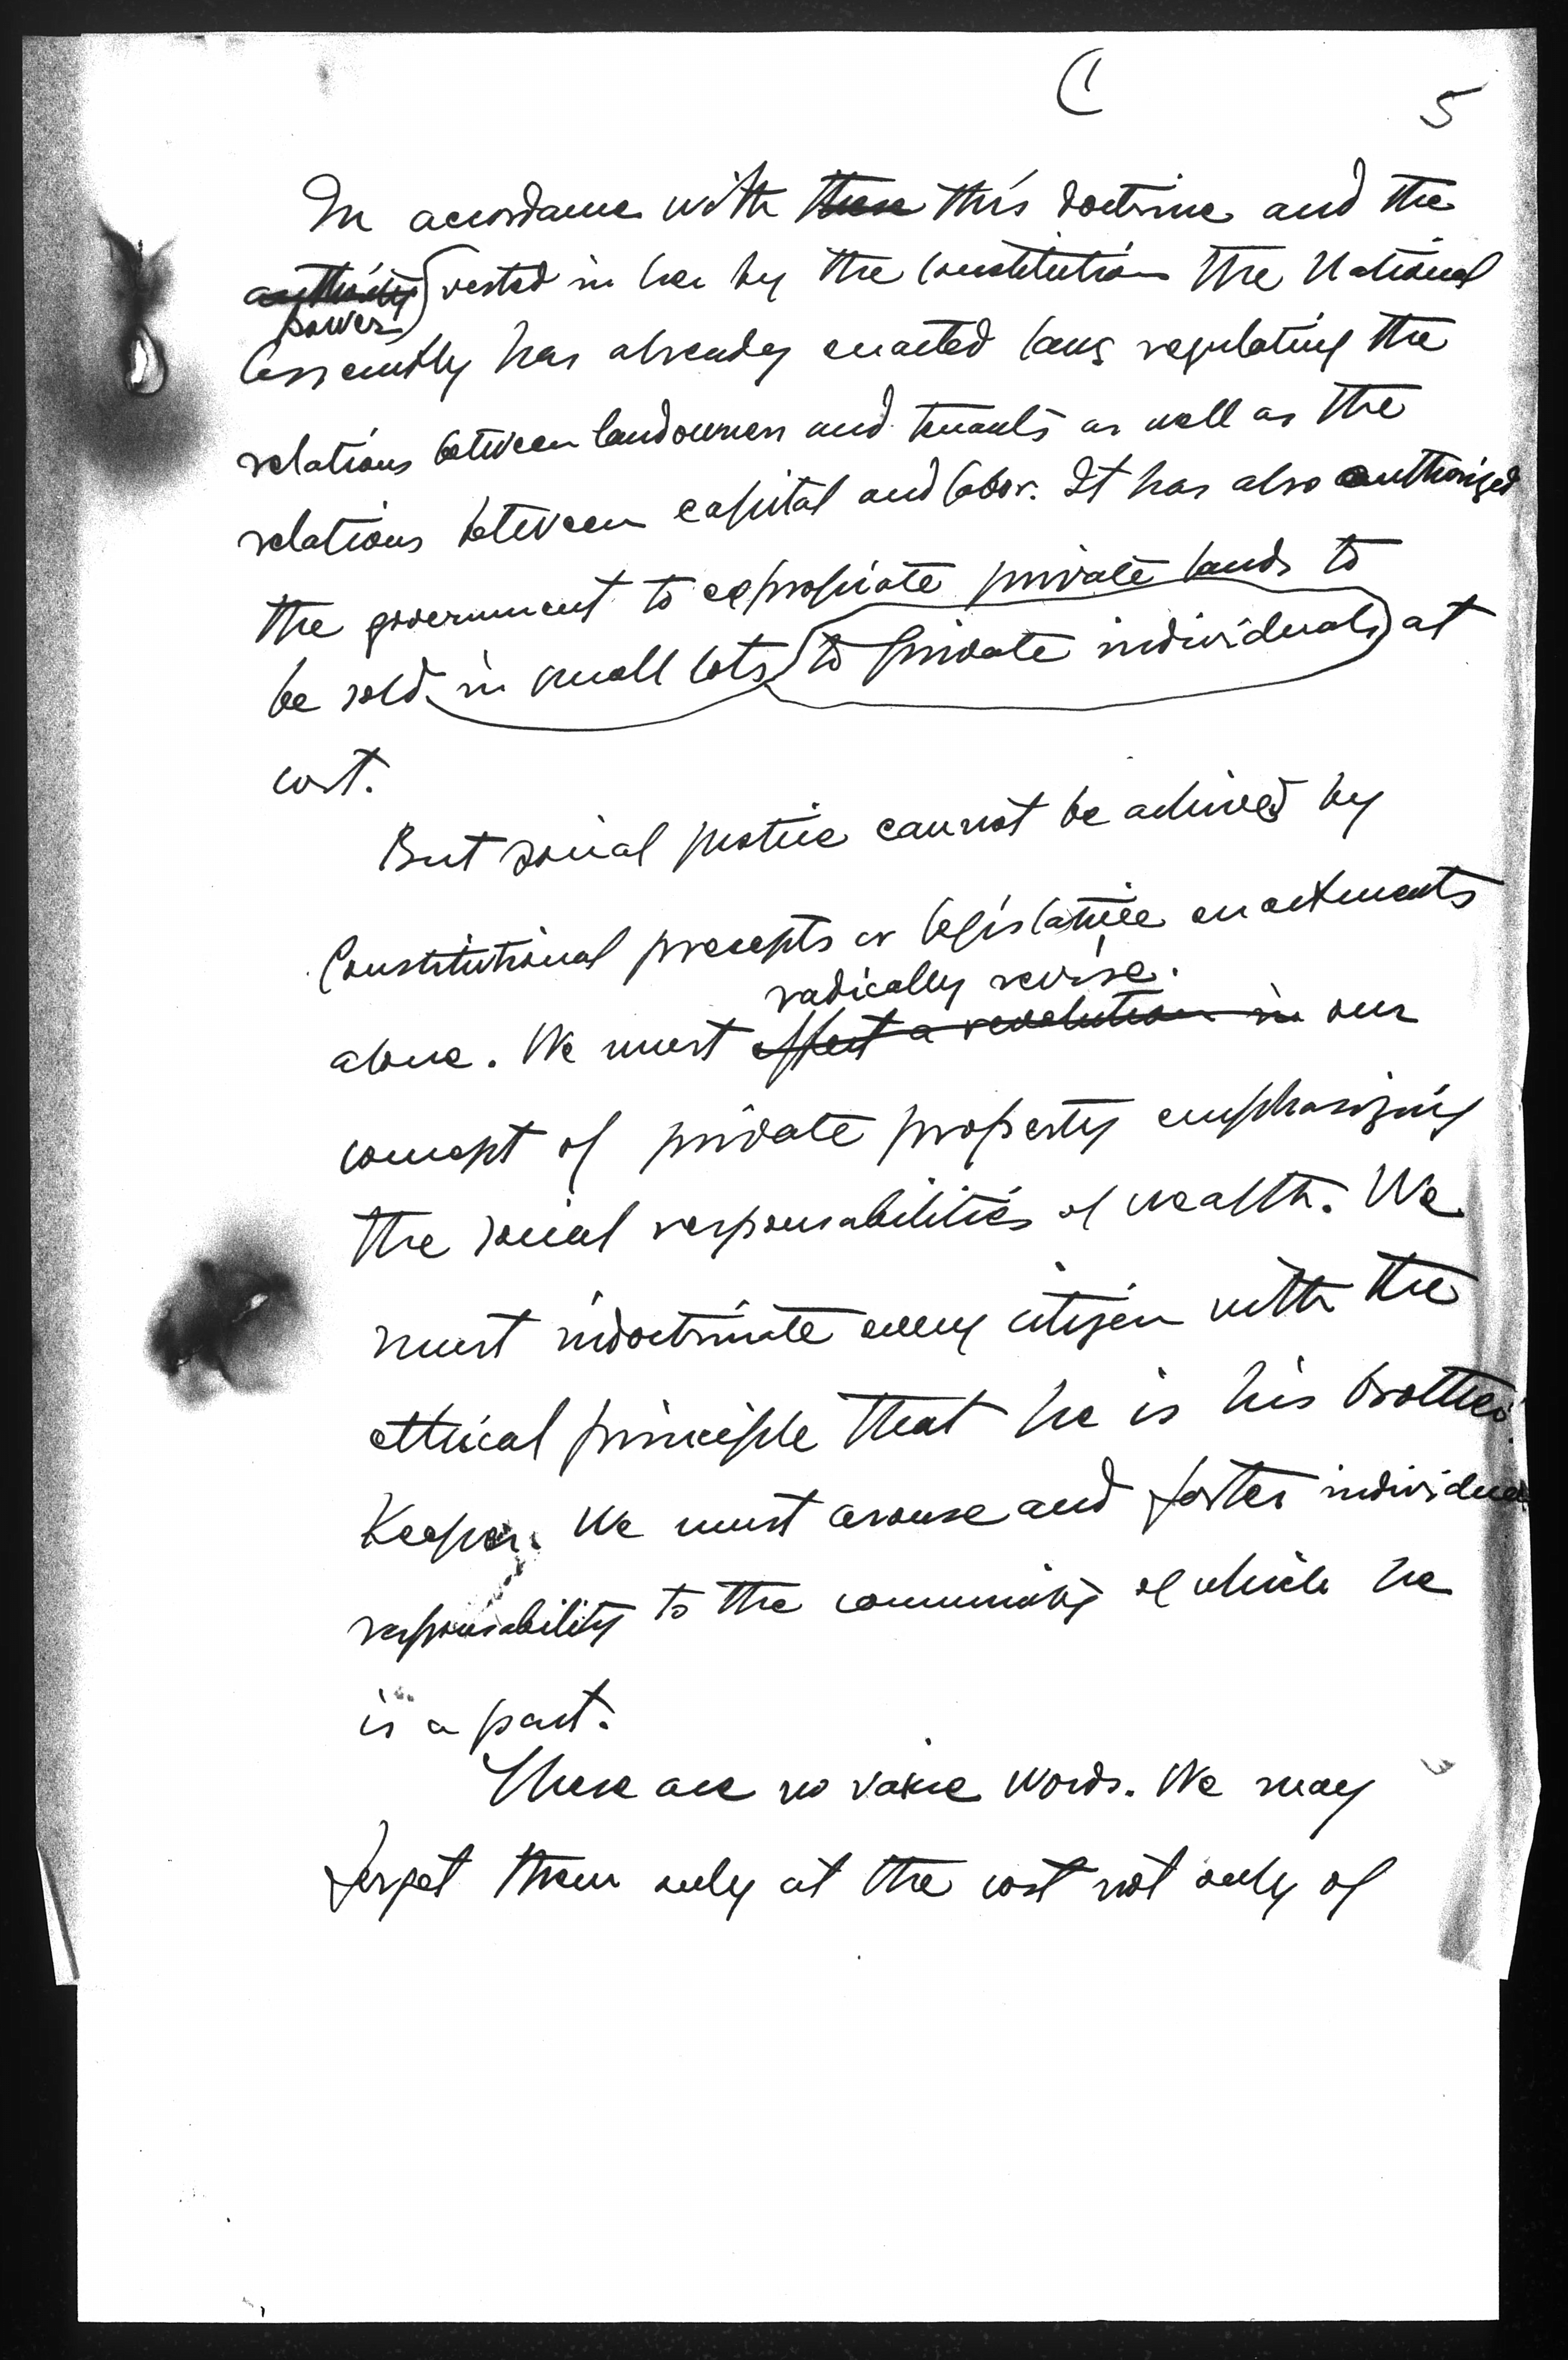 C 5
In accordance with these this doctrine and the
authority vested in her by the Constitution the National
power
Assembly has already enacted laws regulating the
relations between landowners and tenants as well as the
relations between capital and labor. It has also authorized
the government to expropriate private lands to
be sold in small lots to private individuals at
cost.
But social justice cannot be achieved by
Constitutional precepts or legislative enactments
radically revise
alone. We must effect a revolution in our
concept of private property emphasizing
the social responsabilities of wealth. We
must indoctrinate every citizen with the
ethical principle that he is his brother's
Keeper. We must arouse and foster individual
responsability to the community of which he
is a part.
These are no vain words. We may
forget them only at the cost not only of